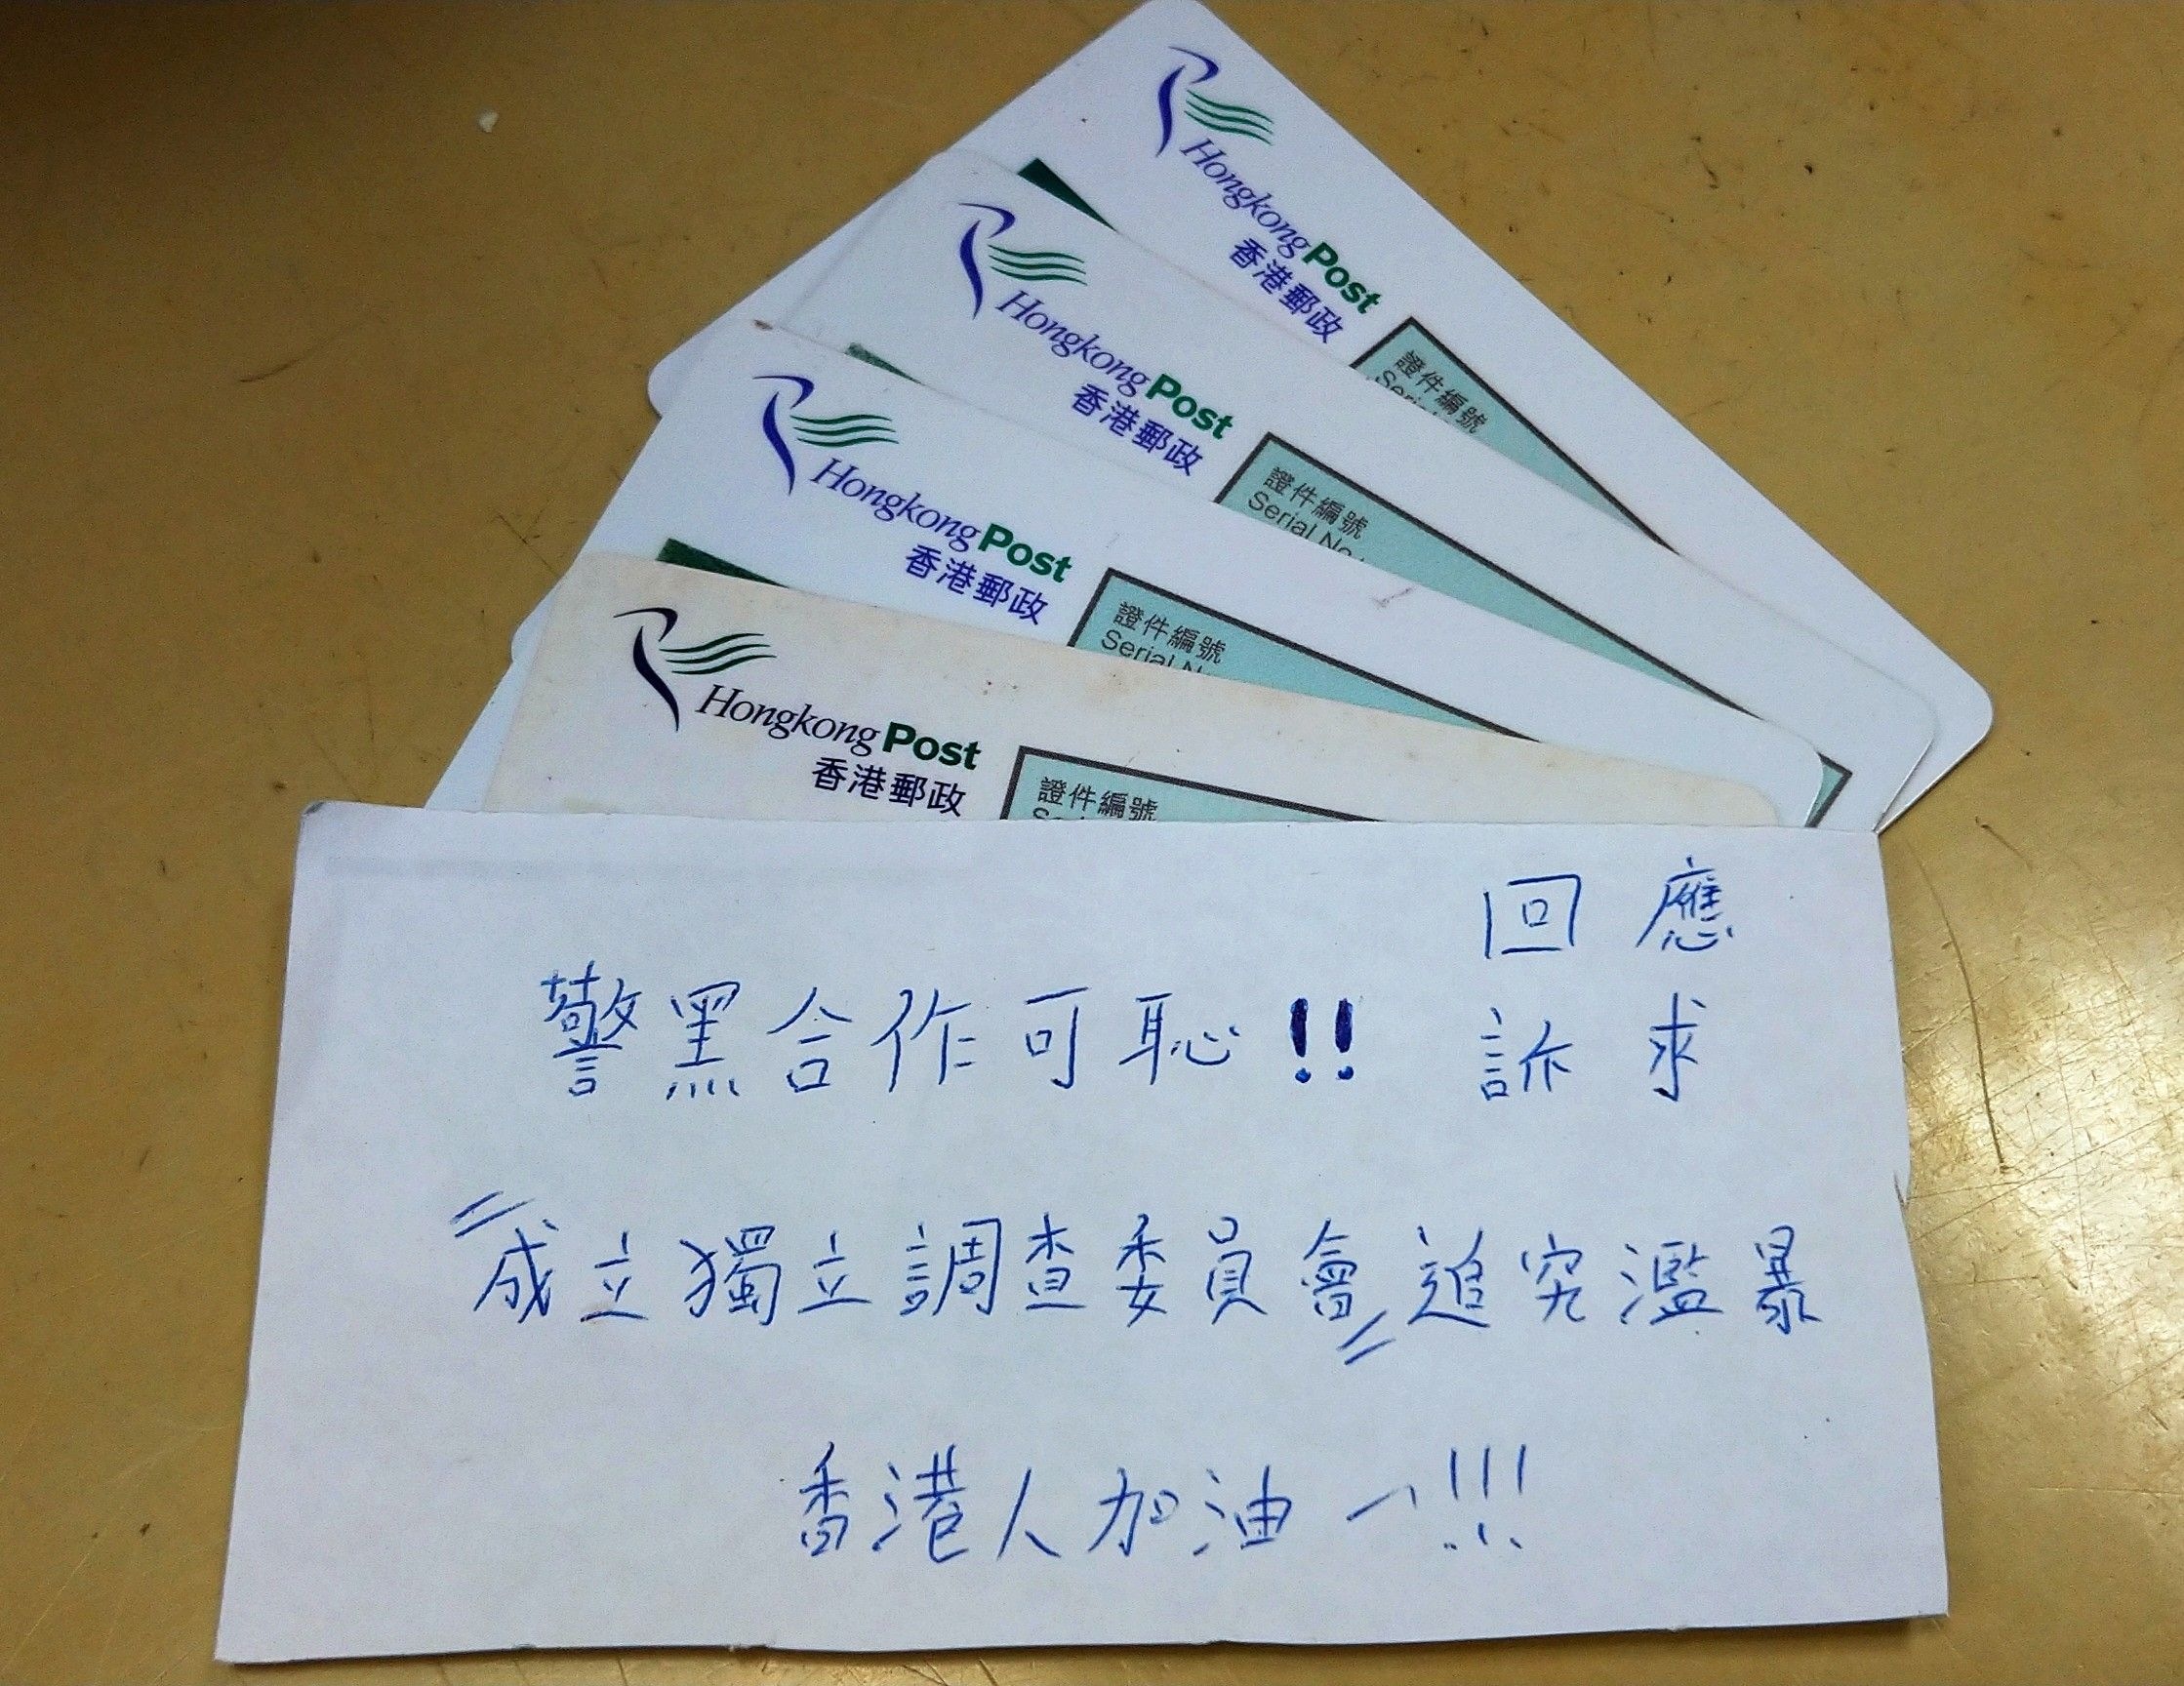 Hongkong Post
香港郵政
證件編號
Hongkong Post
香港郵政
證件編號
Serial No
Hongkong Post
香港郵政
證件編號
Serial N
Hongkong Post
香港郵政
證件編號
回應
警黑合作可恥!! 訴求
"成立獨立調查委員會"追究濫暴
香港人加油一!!!